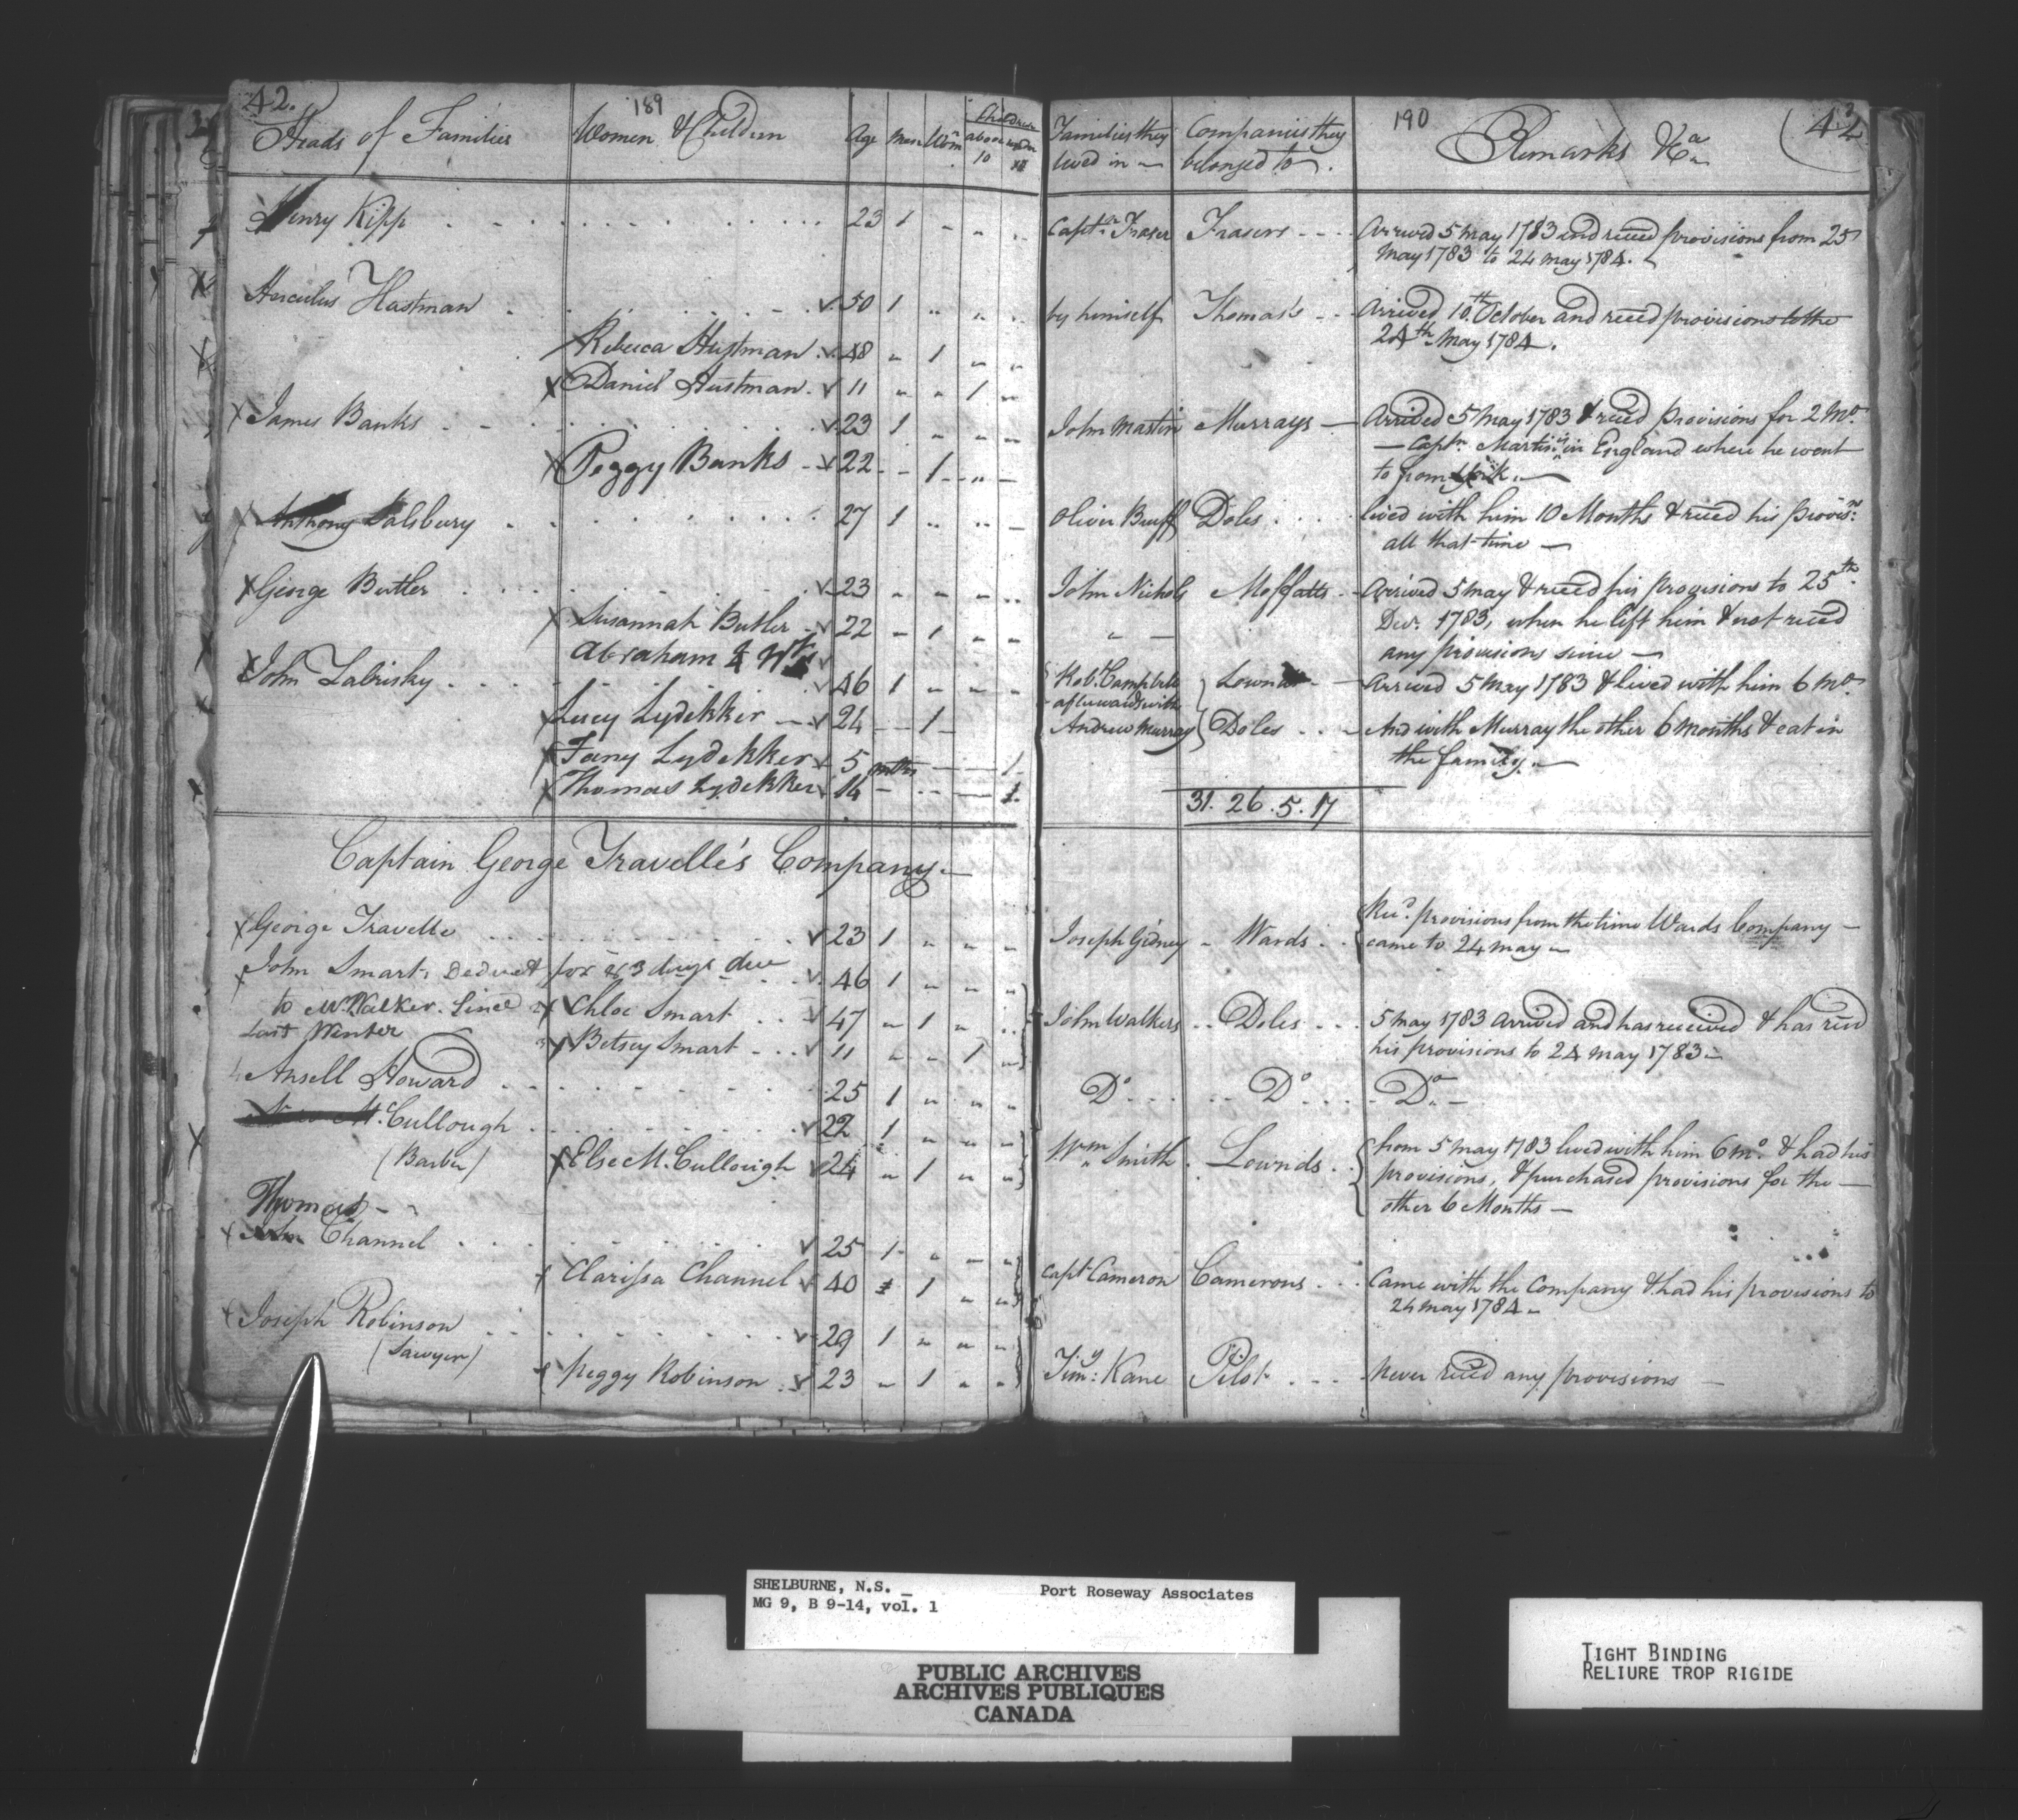 42.
189
Heads of Families Women & Children Age Men Wom Children above 10 under
Henry Kipp 23 1 " " "
Herculus Hastman 50 1 " " "
Rebecca Hustman 48 " 1 " "
Daniel Hustman 11 " " 1 "
James Banks 23 1 " " "
Peggy Banks 22 - 1 - -
Anthony Salsbury 27 1 " " "
George Butler 23 " " " "
Susannah Butler 22 " 1 " "
Abraham
John Zabrisky 46 1 " " "
Lucy Lydekker 24 - 1 -
Fany Lydekker 5 - - 1
Thomas Lydekker 14 - - - 1
Captain George Travelle's Company
George Travelle 23 1 " " "
John Smart. Deduct for 23 days due 46 1 " " "
to Mr. Walker. Since Chloe Smart 47 " 1 " "
Last Winter Betsey Smart 11 " " 1 "
Ansell Howard 25 1 " " "
M.Cullough 22 1 " " "
(Barber) Else M.Cullough 24 " 1 " "
Thomas
Channel 25 1 " " "
Clarissa Channel 40 1 " "
Joseph Robinson 29 1 " " "
(Sawyer)
Peggy Robinson 23 " 1 " "
190
Families they lived in Companies they belonged to. Remarks &ca
Captn. Fraser Frasers Arrived 5 May 1783 and reced provisions from 25
May 1783 to 24 May 1784.
by himself Thomas's Arrived 10th October and reced provisions to the
24th May 1784.
John Martin Murrays Arrived 5 May 1783 & reced provisions for 2 Mo.
Captn. Martin is in England where he went
to from York.
Oliver Bruff Doles lived with him 10 Months & reced his provisns.
all that time
John Nichols Moffatts Arrived 5 May & reced his provisions to 25th
" Decr. 1783, when he left him & not reced
any provisions since
Robt. Campbell Lownds Arrived 5 May 1783 & lived with him 6 Mo.
afterwards with
Andrew Murray Doles And with Murray the other 6 months & eat in
the family.
31. 26. 5. 17
Joseph Gidney Wards Recd. provisions from the time Wards Company
came to 24 may
John Walkers Doles 5 may 1783 arrived and has received & has recd
his provisions to 24 may 1783
Do Do Do
Wm Smith Lownds from 5 may 1783 lived with him 6 mo. & had his
provisions, & purchased provisions for the
other 6 Months
Capt Cameron Camerons Came with the Company & had his provisions to
24 may 1784
Timy: Kane Pilot Never reced any provisions
SHELBURNE, N.S. Port Roseway Associates
MG 9, B 9-14, vol. 1
PUBLIC ARCHIVES
ARCHIVES PUBLIQUES
CANADA
TIGHT BINDING
RELIURE TROP RIGIDE